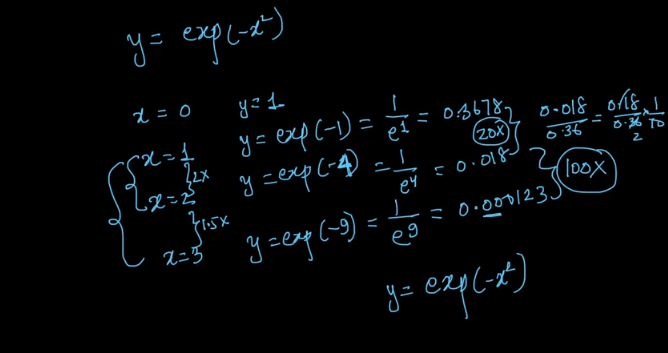 y = exp(-x²)
x = 0 y = 1
x = 1 y = exp(-1) = 1/e¹ = 0.3678
2x 20x 0.018/0.36 = 0.18/0.36 × 1/10
2
x = 2 y = exp(-4) = 1/e⁴ = 0.018
1.5x 100x
x = 3 y = exp(-9) = 1/e⁹ = 0.000123
y = exp(-x²)